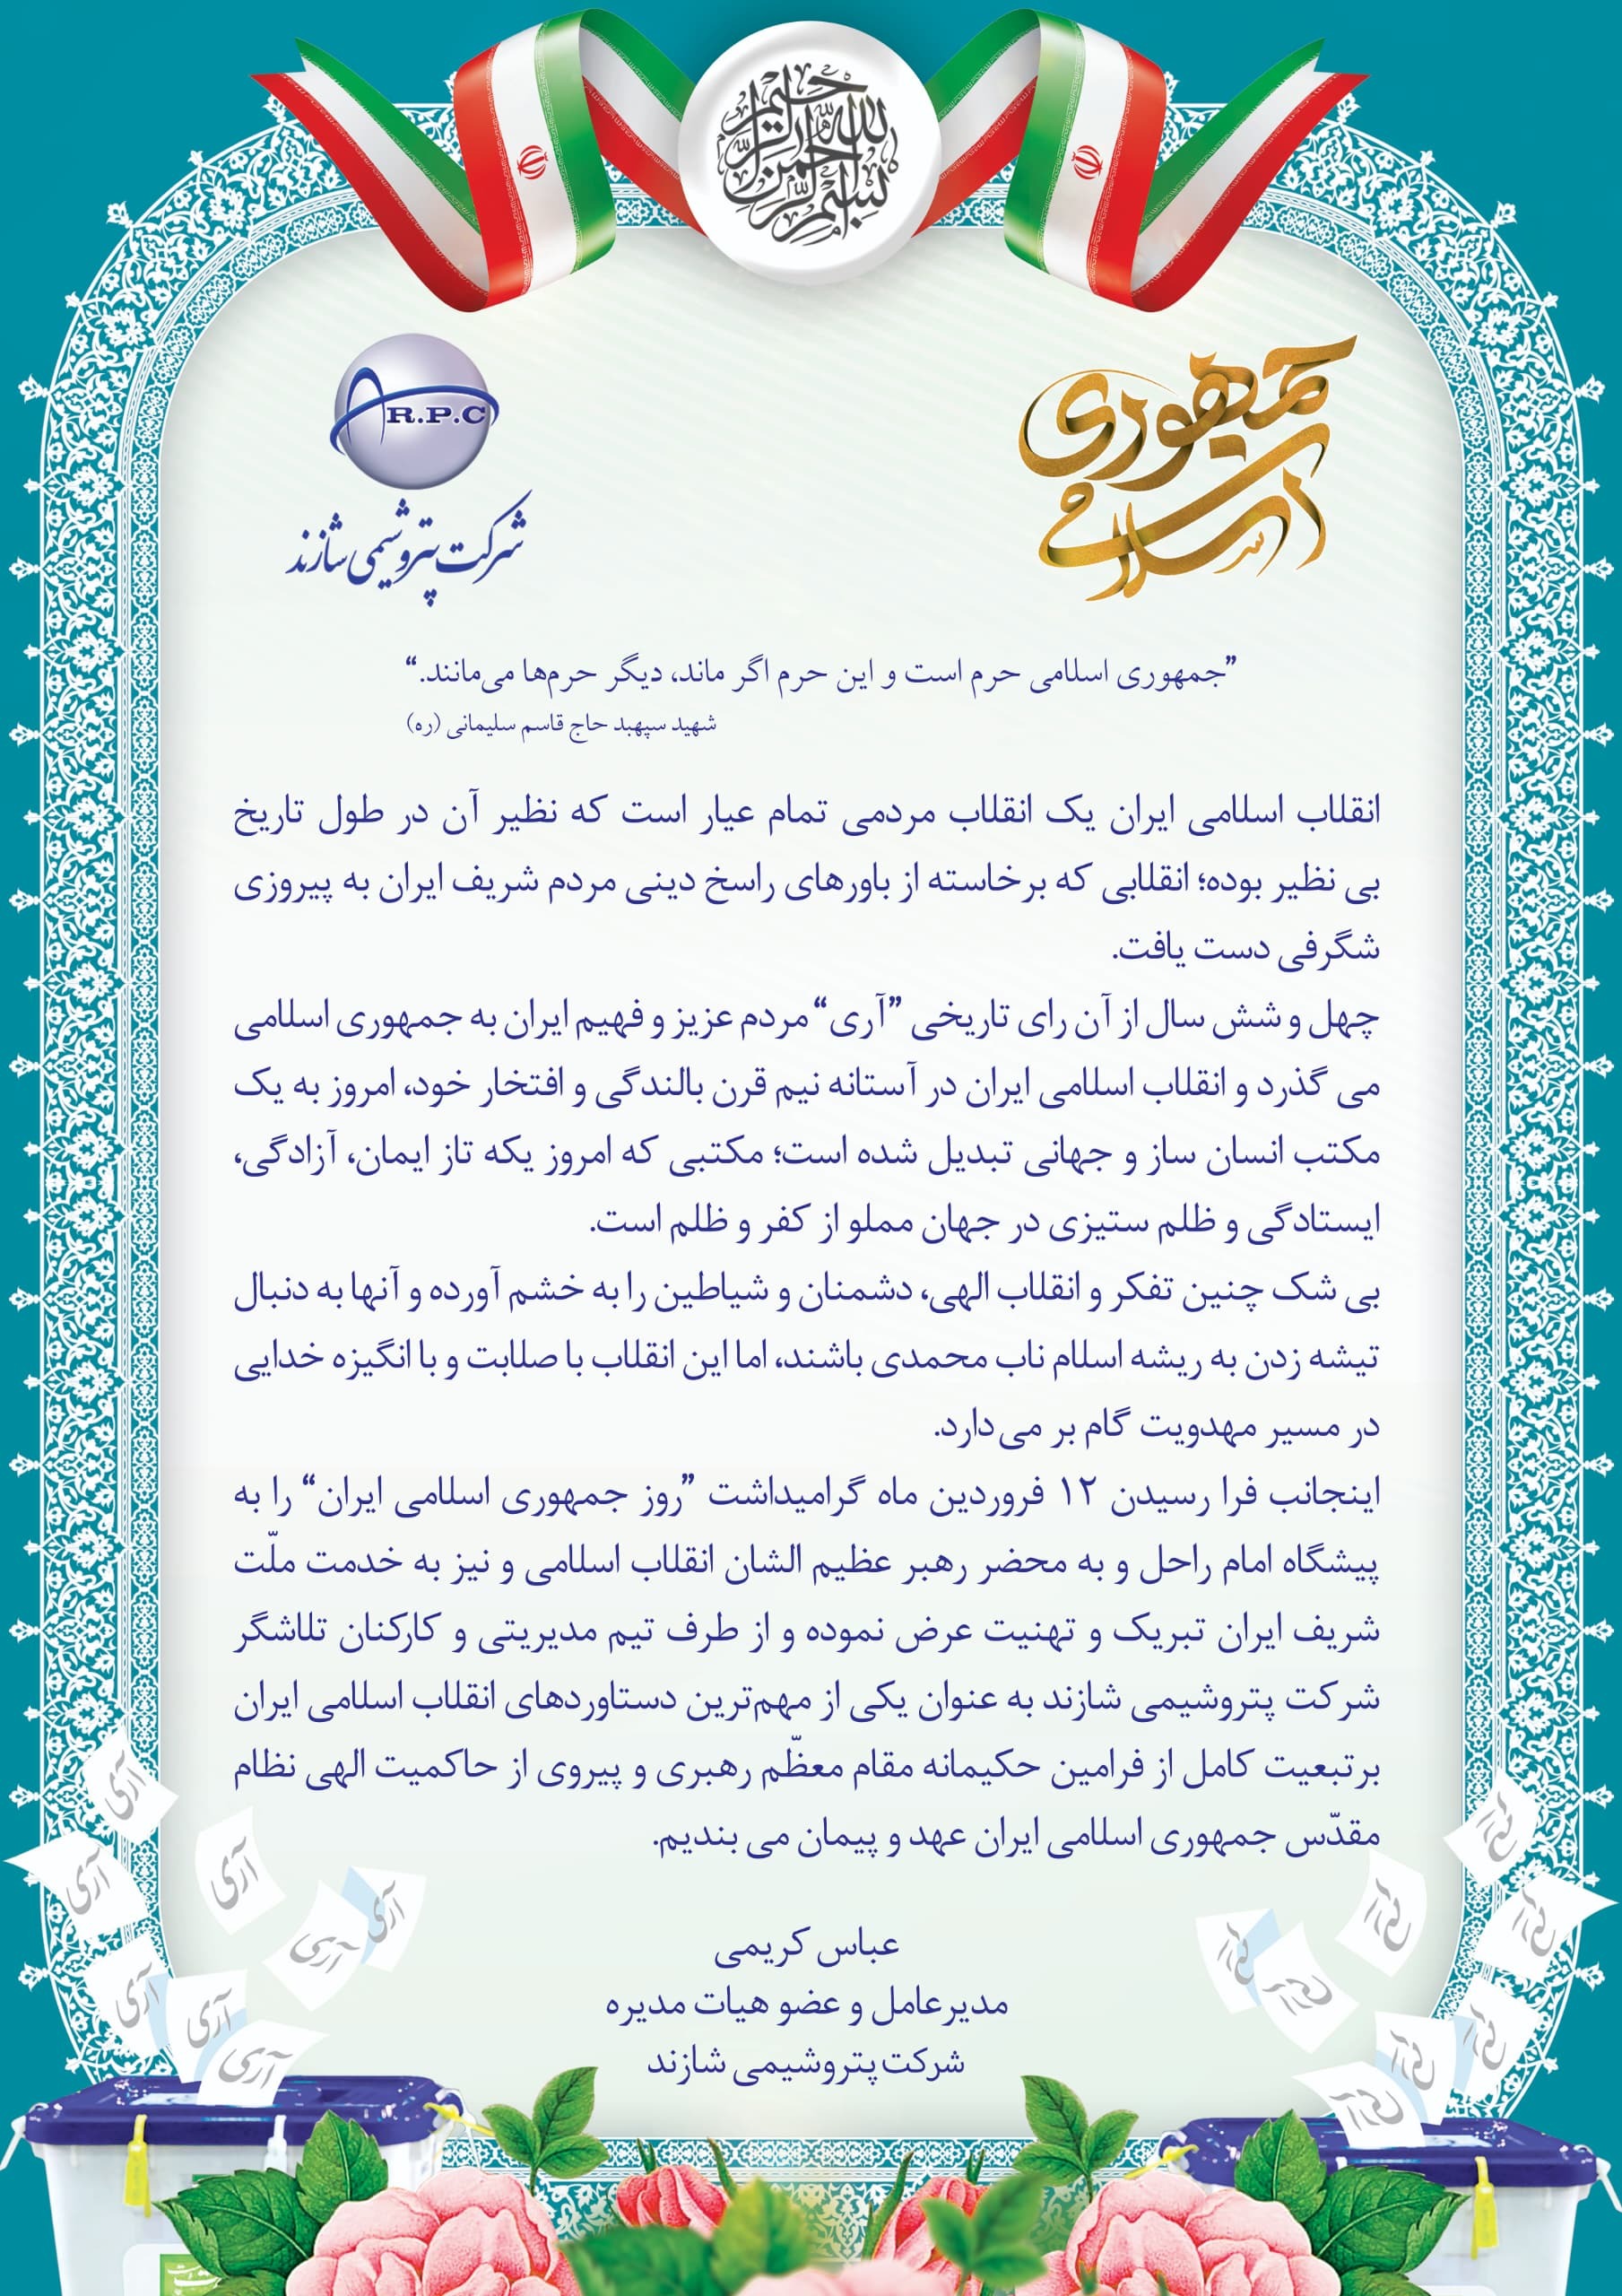 بسم الله الرحمن الرحیم
جمهوری اسلامی
A R.P.C
شرکت پتروشیمی شازند
”جمهوری اسلامی حرم است و این حرم اگر ماند، دیگر حرم‌ها می‌مانند.“
شهید سپهبد حاج قاسم سلیمانی (ره)
انقلاب اسلامی ایران یک انقلاب مردمی تمام عیار است که نظیر آن در طول تاریخ
بی نظیر بوده؛ انقلابی که برخاسته از باورهای راسخ دینی مردم شریف ایران به پیروزی
شگرفی دست یافت.
چهل و شش سال از آن رای تاریخی ”آری“ مردم عزیز و فهیم ایران به جمهوری اسلامی
می گذرد و انقلاب اسلامی ایران در آستانه نیم قرن بالندگی و افتخار خود، امروز به یک
مکتب انسان ساز و جهانی تبدیل شده است؛ مکتبی که امروز یکه تاز ایمان، آزادگی،
ایستادگی و ظلم ستیزی در جهان مملو از کفر و ظلم است.
بی شک چنین تفکر و انقلاب الهی، دشمنان و شیاطین را به خشم آورده و آنها به دنبال
تیشه زدن به ریشه اسلام ناب محمدی باشند، اما این انقلاب با صلابت و با انگیزه خدایی
در مسیر مهدویت گام بر می‌دارد.
اینجانب فرا رسیدن ۱۲ فروردین ماه گرامیداشت ”روز جمهوری اسلامی ایران“ را به
پیشگاه امام راحل و به محضر رهبر عظیم الشان انقلاب اسلامی و نیز به خدمت ملّت
شریف ایران تبریک و تهنیت عرض نموده و از طرف تیم مدیریتی و کارکنان تلاشگر
شرکت پتروشیمی شازند به عنوان یکی از مهم‌ترین دستاوردهای انقلاب اسلامی ایران
بر تبعیت کامل از فرامین حکیمانه مقام معظّم رهبری و پیروی از حاکمیت الهی نظام
مقدّس جمهوری اسلامی ایران عهد و پیمان می بندیم.
عباس کریمی
مدیرعامل و عضو هیات مدیره
شرکت پتروشیمی شازند
آری
آری
آری
آری
آری
آری
آری
آری